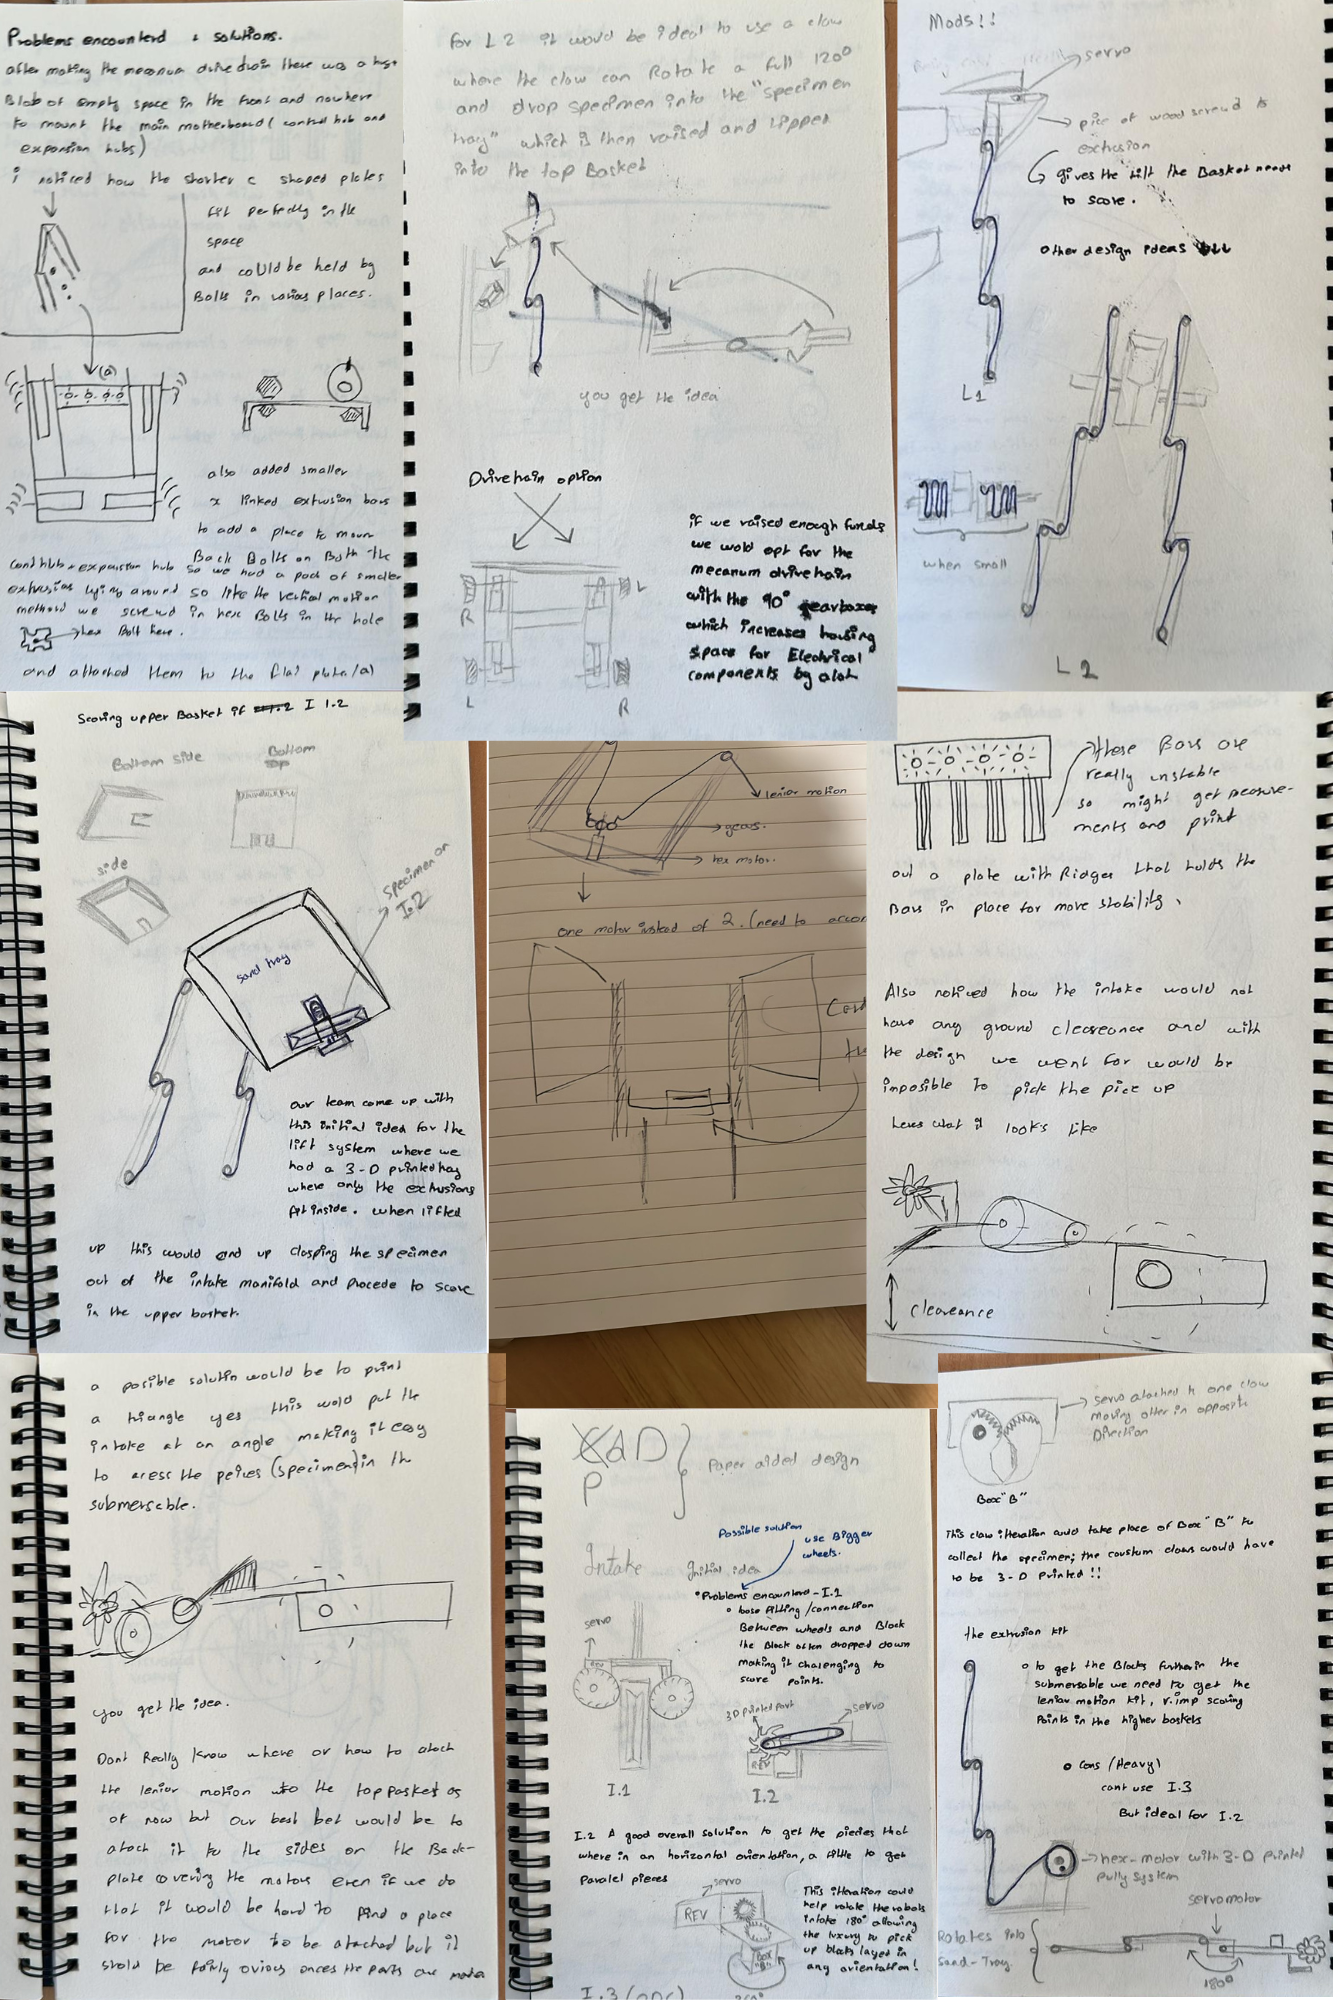 Problems encounterd + solutions.
after making the mecanum drivetrain there was a huge
Blob of empty space in the front and nowhere
to mount the main motherboard (control hub and
expansion hubs)
i noticed how the shorter c shaped plates
fit perfectly in the
space
and could be held by
Bolts in various places.
(a)
also added smaller
x linked extrusion bars
to add a place to moun
Back Bolts on Both the
expansion hub so we had a pack of smaller
extrusins lying around so like the vertial motion
method we screwd in hex Bolts in the hole
hex Bolt here.
and attached them to the flat plate (a)
for L2 it would be ideal to use a claw
where the claw can Rotate a full 120°
and drop specimen into the "specimen
tray" which is then raised and tipped
into the top Basket
you get the idea
Drivetrain option
L
R
L
R
if we raised enough funds
we wold opt for the
mecanum drivetrain
with the 90° gearboxes
which increases housing
space for Electrical
components by alot
Mods!!
servo
pice of wood screwd to
extrusion
gives the tilt the Basket needs
to score.
other design ideas
L1
when small
L2
Scoring upper Basket if I 1.2
Bottom side
Bottom
top
side
specimen on
I.2
sand tray
our team came up with
this initial idea for the
lift system where we
had a 3-D printed tray
where only the extrusions
fit inside. when lifted
up this would end up clasping the specimen
out of the intake manifold and procede to score
in the upper basket.
lenier motion
gears.
hex motor.
one motor instead of 2. (need to accom
these Bars are
really unstable
so might get measure-
ments and print
out a plate with Ridges that holds the
Bars in place for more stability.
Also noticed how the intake would not
have any ground cleareance and with
the design we went for would be
imposible to pick the pice up
heres what it looks like
cleareance
a posible solutin would be to print
a triangle yes this wold put the
intake at an angle making it easy
to acess the peices (specimen) in the
submersable.
you get the idea.
Dont Really know where or how to atach
the lenier motion into the top basket as
of now but our best bet would be to
atach it to the sides or the Back-
plate covering the motors even if we do
that it would be hard to find a place
for the motor to be atached but it
shold be fairly ovious onces the parts are made
CAD
P
Paper aided design
Possible solution
use Bigger
wheels.
Intake
Initial idea
Problems encounterd - I.1
lose fitting/connection
Between wheels and Block
the Block often dropped down
making it chalenging to
score points.
servo
REV
3D printed part
servo
REV
I.1
I.2
I.2 A good overall solution to get the piecies that
where in an horizontal orientation, a little to get
paralel pieces
servo
REV
Box
"B"
This itteration could
help rotate the robots
intake 180° allowing
the luxury to pick
up blocks layed in
any orientation!
I.3
servo atached to one claw
moving other in opposite
Direction
Box "B"
This claw itteration could take place of Box "B" to
collect the specimen; the coustum claws would have
to be 3-D Printed!!
the extrusion kit
to get the Blocks further in the
submersable we need to get the
lenier motion kit, v.imp scoring
Points in the higher baskets
cons (Heavy)
cant use I.3
But ideal for I.2
hex-motor with 3-D printed
pully system
servomotor
Rotates into
Sand-Tray
180°